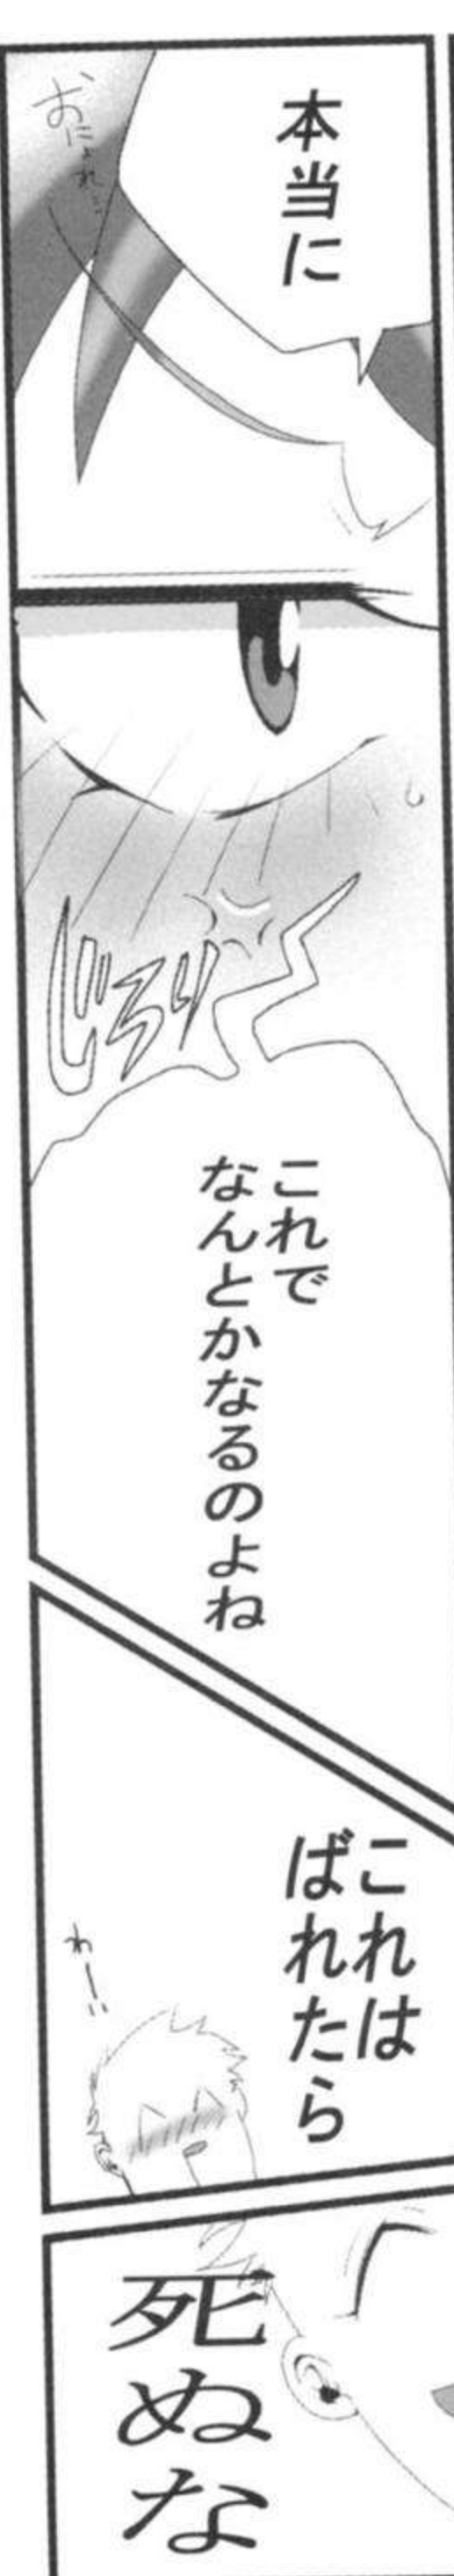 本当に
おにょれ…
じろり
これで
なんとかなるのよね
これは
ばれたら
わー…
死ぬな